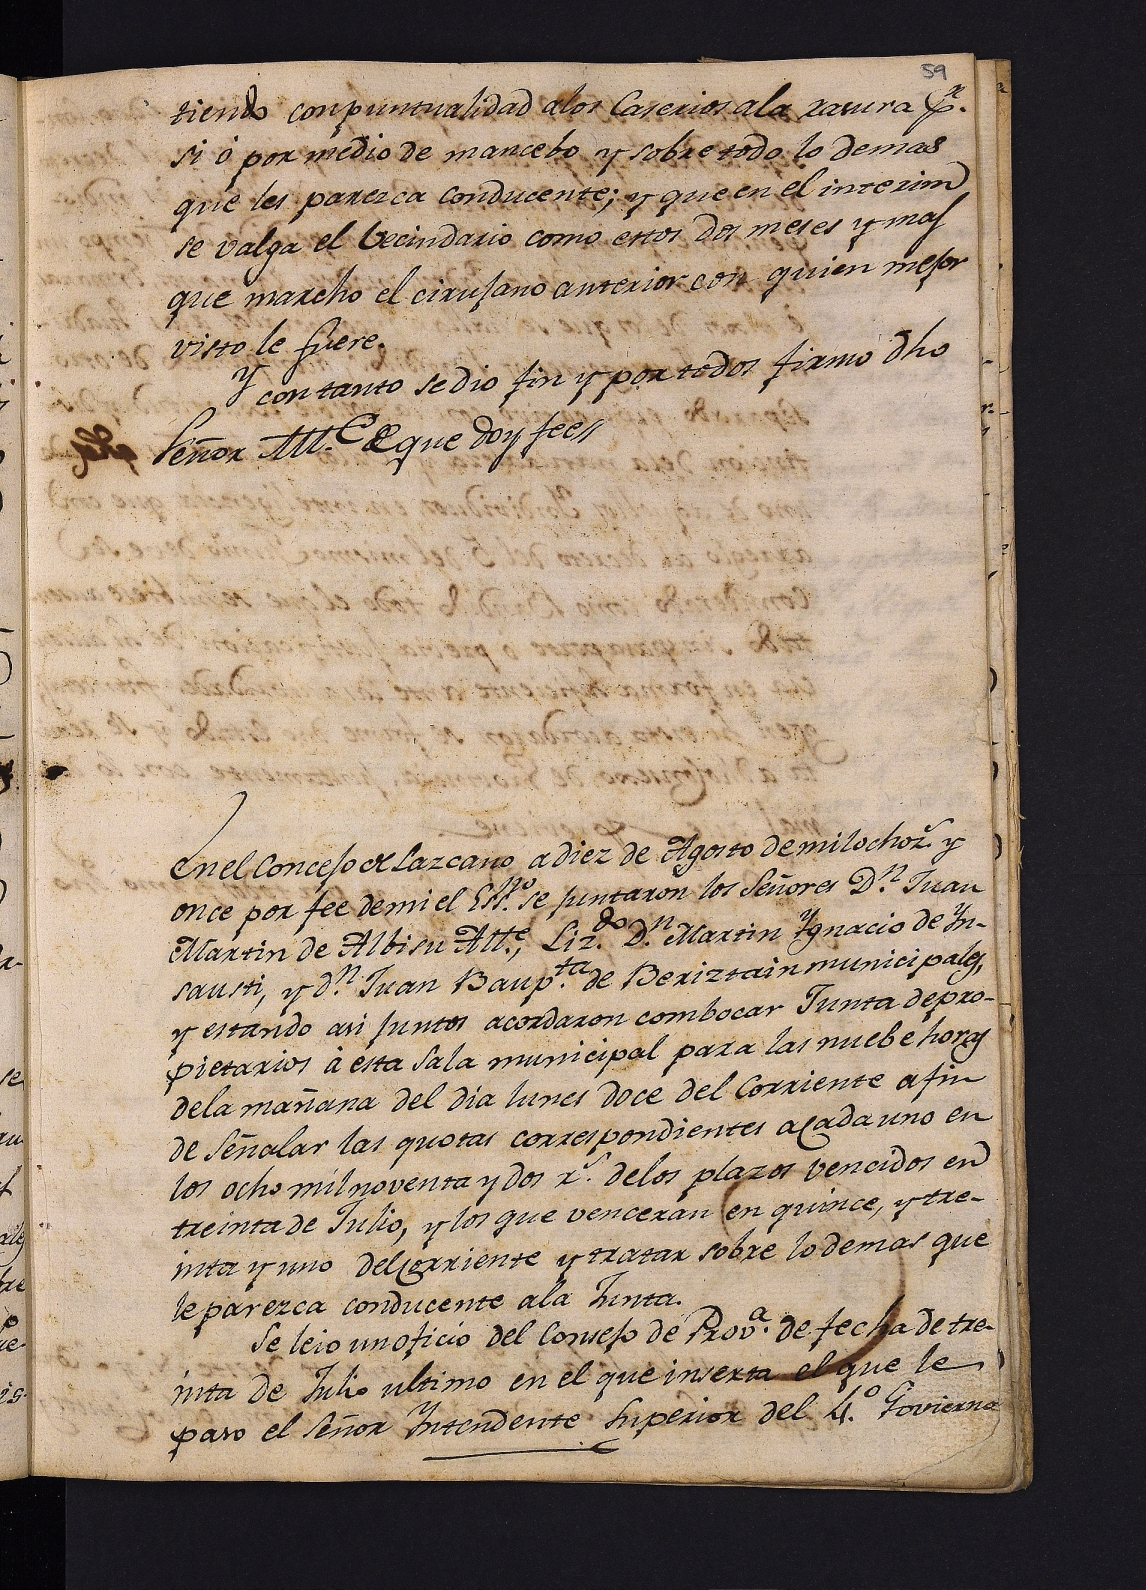 59
tiendo con puntualidad a los Caserios a la rasura p.r
si ó por medio de mancebo y sobre todo lo demas
que les parezca conducente; y que en el interim
se valga el Vecindario como estos dos meses y mas
que marcho el cirujano anterior con quien mejor
visto le fuere.
Y con tanto se dio fin y por todos firmo dho
Señor Alt.e de que doy fee//
En el Concejo de Lazcano a diez de Agosto de mil ochoz.s y
once por fee de mi el Ess.no se juntaron los Señores D.n Juan
Martin de Albisu Alt.e, Liz.do D.n Martin Ygnacio de Yn-
sausti, y d.n Juan Baup.ta de Beriztain municipales,
y estando asi juntos acordaron combocar Junta de pro-
pietarios à esta Sala municipal para las nuebe horas
dela mañana del dia lunes doce del Corriente a fin
de Señalar las quotas correspondientes a Cada uno en
los ocho mil noventa y dos r.s delos plazos vencidos en
treinta de Julio, y los que venceran en quince, y tre-
inta y uno del Corriente y tratar sobre lo demas que
le parezca conducente ala Junta.
Se leio un oficio del Consejo de Prov.a de fecha de tre-
inta de Julio ultimo en el que inserta el que le
paso el Señor Yntendente Superior del 4.o Govierno